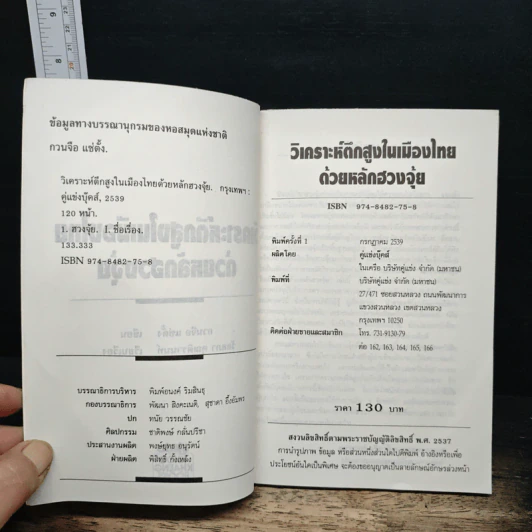 ข้อมูลทางบรรณานุกรมของหอสมุดแห่งชาติ
กวนจือ แซ่ตั้ง.
วิเคราะห์ตึกสูงในเมืองไทยด้วยหลักฮวงจุ้ย. กรุงเทพฯ :
คู่แข่งบุ๊คส์, 2539
120 หน้า.
1. ฮวงจุ้ย. I. ชื่อเรื่อง.
133.333
ISBN 974-8482-75-8
บรรณาธิการบริหาร พิมพ์อนงค์ ริมสินธุ
กองบรรณาธิการ พัฒนา สิงคะเนติ, สุชาดา อึ้งอัมพร
ปก ทนัย วรรณชัย
ศิลปกรรม ชาติพงษ์ กลั่นปรีชา
ประสานงานผลิต พงษ์ยุทธ อนุรัตน์
ฝ่ายผลิต พิสิทธิ์ กั้งเหล้ง
วิเคราะห์ตึกสูงในเมืองไทย
ด้วยหลักฮวงจุ้ย
ISBN 974-8482-75-8
พิมพ์ครั้งที่ 1 กรกฎาคม 2539
ผลิตโดย คู่แข่งบุ๊คส์
ในเครือ บริษัทคู่แข่ง จำกัด (มหาชน)
พิมพ์ที่ บริษัทคู่แข่ง จำกัด (มหาชน)
27/471 ซอยสวนหลวง ถนนพัฒนาการ
แขวงสวนหลวง เขตสวนหลวง
กรุงเทพฯ 10250
ติดต่อฝ่ายขายและสมาชิก โทร. 731-9130-79
ต่อ 162, 163, 164, 165, 166
ราคา 130 บาท
สงวนลิขสิทธิ์ตามพระราชบัญญัติลิขสิทธิ์ พ.ศ. 2537
การนำรูปภาพ ข้อมูล หรือส่วนหนึ่งส่วนใดไปตีพิมพ์ อ้างอิงหรือเพื่อ
ประโยชน์อันใดเป็นพิเศษ จะต้องขออนุญาตเป็นลายลักษณ์อักษรล่วงหน้า